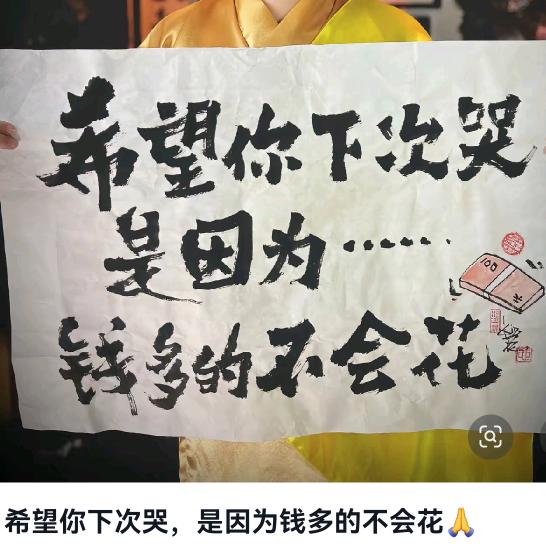 希望你下次哭
是因为……
100
钱多的不会花
希望你下次哭，是因为钱多的不会花🙏